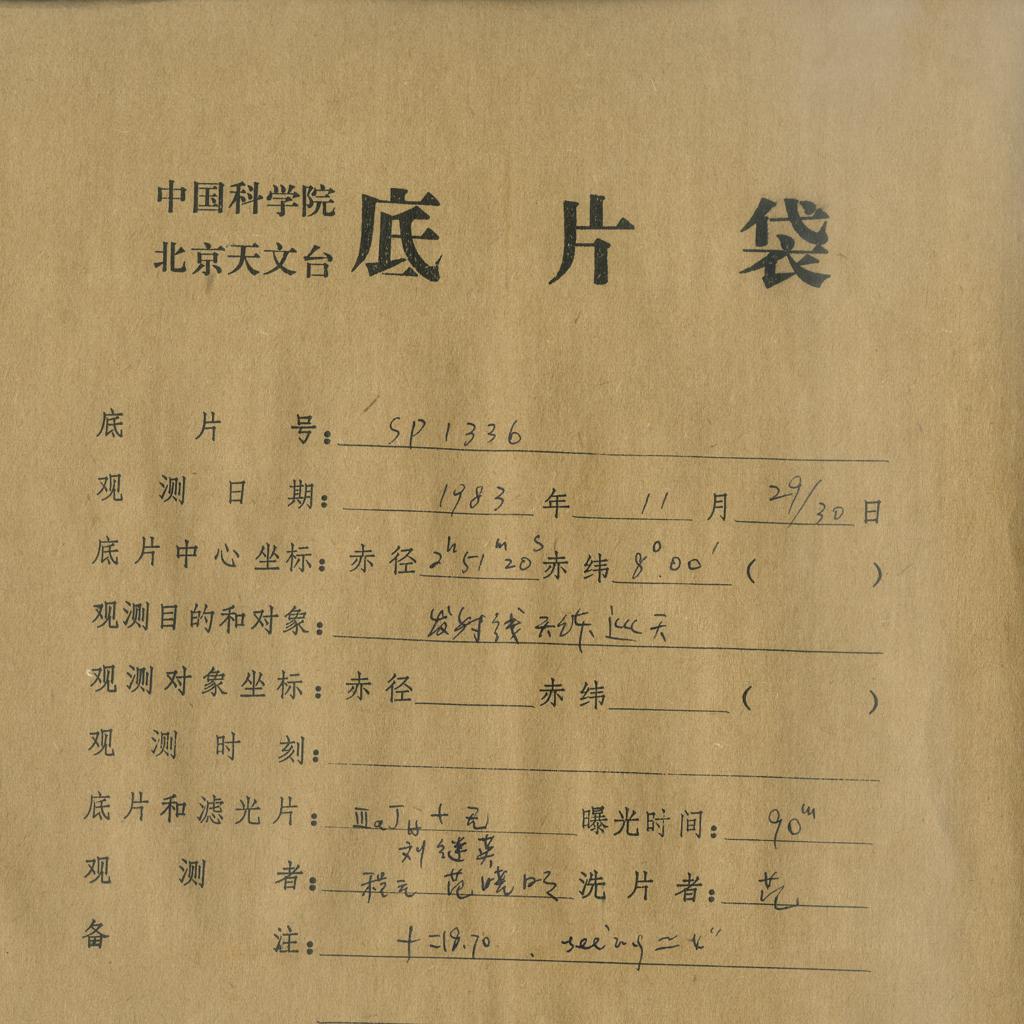 中国科学院
北京天文台 底片袋
底片号： SP1336
观测日期： 1983年 11月 29/30日
底片中心坐标：赤径 2h51m20s 赤纬 8°00′ ( )
观测目的和对象： 发射线天体巡天
观测对象坐标：赤径 赤纬 ( )
观测时刻：
底片和滤光片： ⅢaJH+无 曝光时间： 90m
刘继英
观测者： 程元 范晓明 洗片者： 范
备注： t=18.70 seeing≃4″